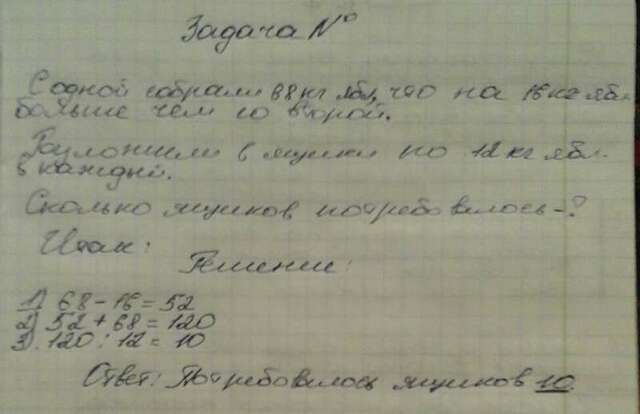 Задача №
С одной собрали 68 кг ябл, что на 16 кг ябл.
больше чем со второй.
Разложили в ящики по 12 кг ябл.
в каждый.
Сколько ящиков потребовалось-?
Итак:
Решение:
1) 68 - 16 = 52
2) 52 + 68 = 120
3). 120 : 12 = 10
Ответ: Потребовалось ящиков 10.